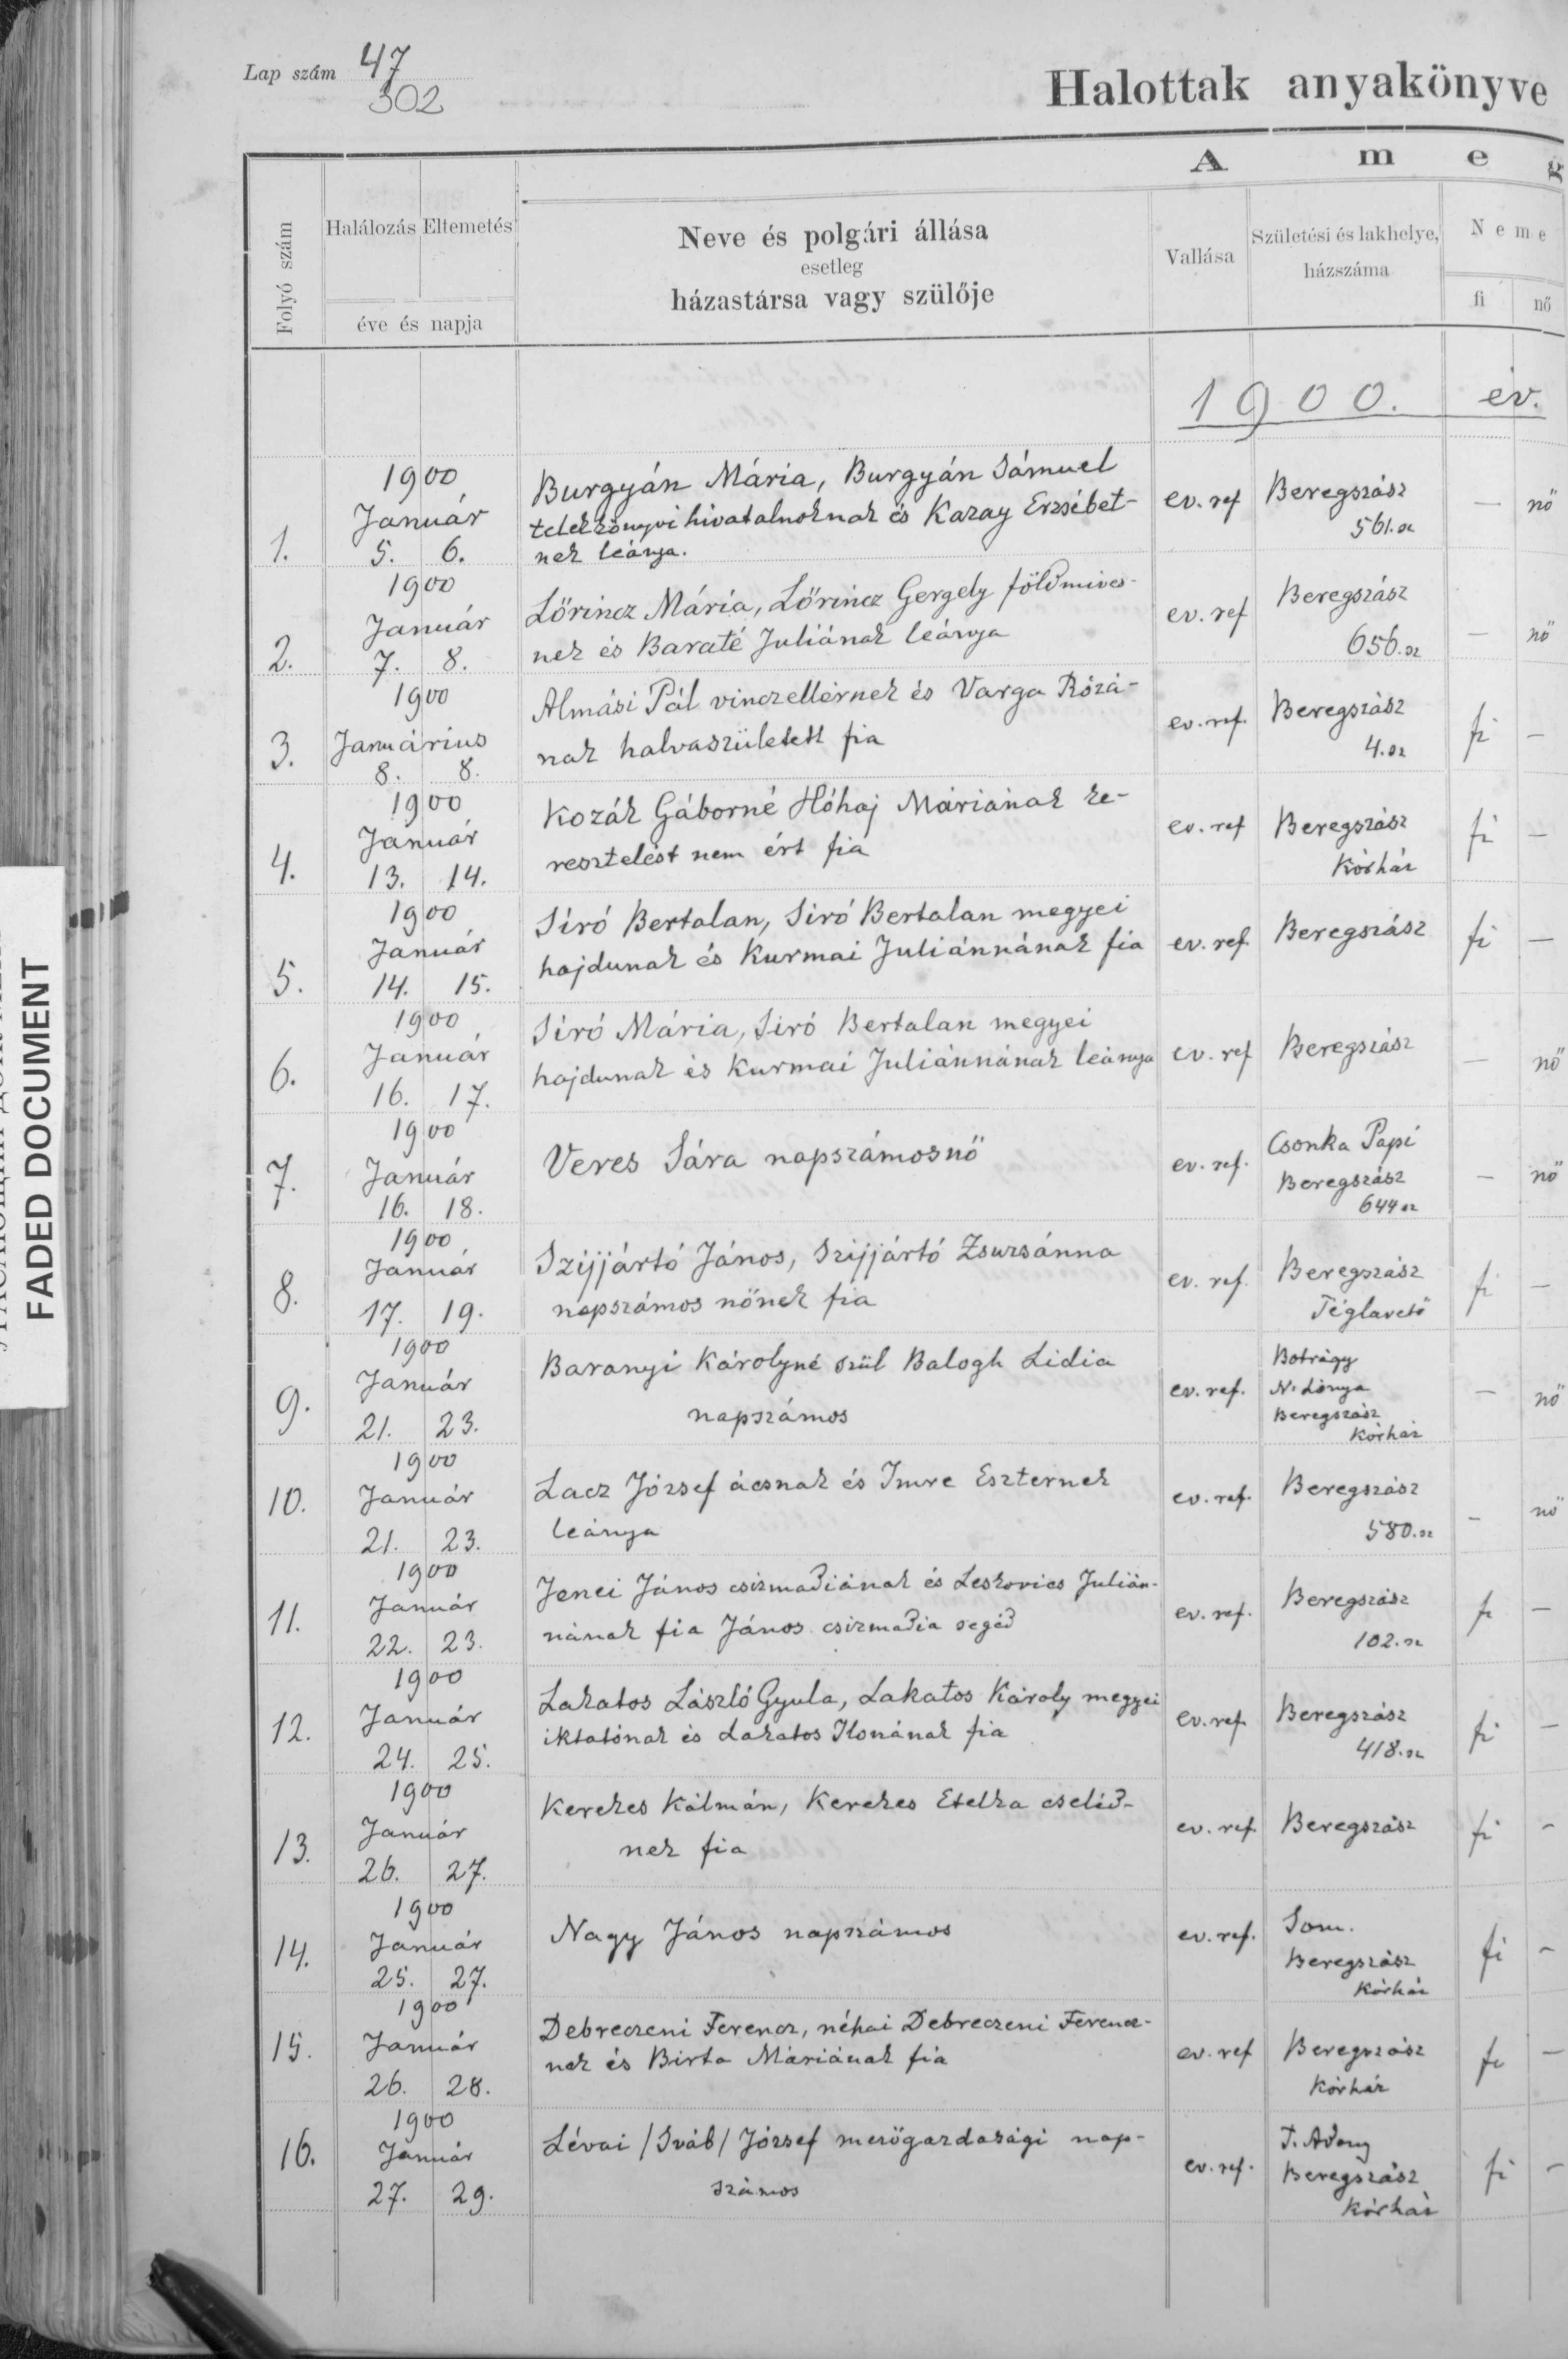 Lap szám 47
302
Halottak anyakönyve
A m e g
Folyó szám
Halálozás Eltemetés
éve és napja
Neve és polgári állása
esetleg
házastársa vagy szülője
Vallása
Születési és lakhelye,
házszáma
Neme
fi nő
1900. év.
1900
Január
1. 5. 6.
Burgyán Mária, Burgyán Sámuel
telekkönyvi hivatalnoknak és Kazay Erzsébet-
nek leánya.
ev. ref
Beregszász
561. sz
— nő
1900
Január
2. 7. 8.
Lőrincz Mária, Lőrincz Gergely földmives-
nek és Baraté Juliának leánya
ev. ref
Beregszász
656. sz
— nő
1900
Januárius
3. 8. 8.
Almási Pál vinczellérnek és Varga Rózá-
nak halvaszületett fia
ev. ref.
Beregszász
4. sz
fi —
1900
Január
4. 13. 14.
Kozák Gáborné Hóhaj Máriának ke-
resztelést nem ért fia
ev. ref
Beregszász
Kórház
fi —
1900
Január
5. 14. 15.
Siró Bertalan, Siró Bertalan megyei
hajdunak és Kurmai Juliánnának fia
ev. ref
Beregszász
fi —
1900
Január
6. 16. 17.
Siró Mária, Siró Bertalan megyei
hajdunak és Kurmai Juliánnának leánya
ev. ref
Beregszász
— nő
1900
Január
7. 16. 18.
Veres Sára napszámosnő
ev. ref.
Csonka Papi
Beregszász
644 sz
— nő
1900
Január
8. 17. 19.
Szijjártó János, Szijjártó Zsuzsánna
napszámos nőnek fia
ev. ref.
Beregszász
Téglavető
fi —
1900
Január
9. 21. 23.
Baranyi Károlyné szül Balogh Lidia
napszámos
ev. ref.
Botrágy
N. Lónya
Beregszász
Kórház
— nő
1900
Január
10. 21. 23.
Lacz József ácsnak és Imre Eszternek
leánya
ev. ref.
Beregszász
580. sz
— nő
1900
Január
11. 22. 23.
Jenei János csizmadiának és Leskovics Julián-
nának fia János csizmadia segéd
ev. ref.
Beregszász
102. sz
fi —
1900
Január
12. 24. 25.
Lakatos László Gyula, Lakatos Károly megyei
iktatónak és Lakatos Ilonának fia
ev. ref.
Beregszász
418. sz
fi —
1900
Január
13. 26. 27.
Kerekes Kálmán, Kerekes Etelka cseléd-
nek fia
ev. ref.
Beregszász
fi -
1900
Január
14. 25. 27.
Nagy János napszámos
ev. ref.
Som.
Beregszász
Kórház
fi -
1900
Január
15. 26. 28.
Debreczeni Ferencz, néhai Debreczeni Ferencz-
nek és Birta Máriának fia
ev. ref
Beregszász
Kórház
fi —
1900
Január
16. 27. 29.
Lévai /Sváb/ József mezőgazdasági nap-
számos
ev. ref.
T. Adony
Beregszász
Kórház
fi -
FADED DOCUMENT